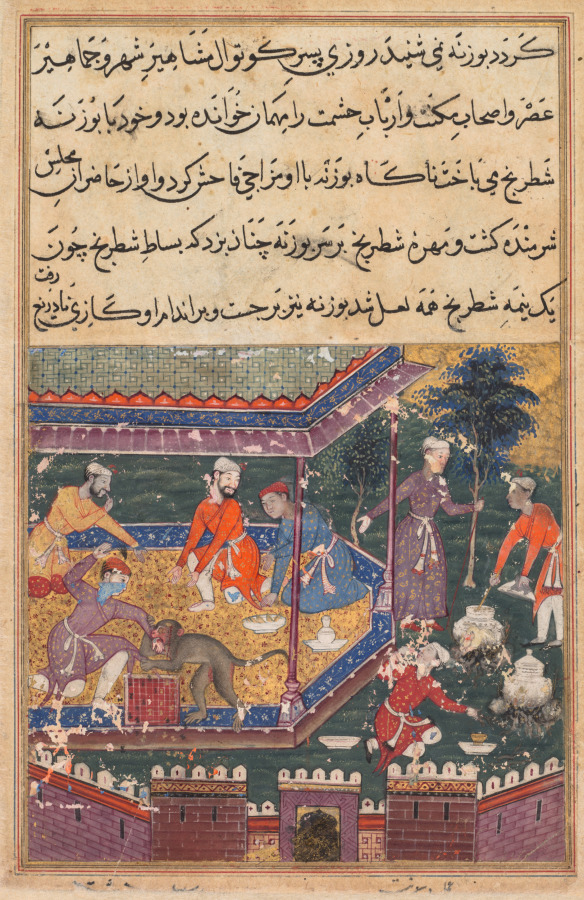 کردد بوزنه نمی شنید روزی پسر کوتوال مشاهیر شهر و جماهیر
عصر و اصحاب مکنت و ارباب حشمت را مهمان خوانده بود و خود با بوزنه
شطرنج می باخت ناکاه بوزنه با او مزاحی فاحش کرد و او از حاضران مجلس
شرمنده کشت و مهرهٔ شطرنج بر سر بوزنه چنان بزد که بساط شطرنج چون
یک نیمهِ شطرنج همه لعل شد بوزنه نیز برجست و بر اندام او کازی رفت